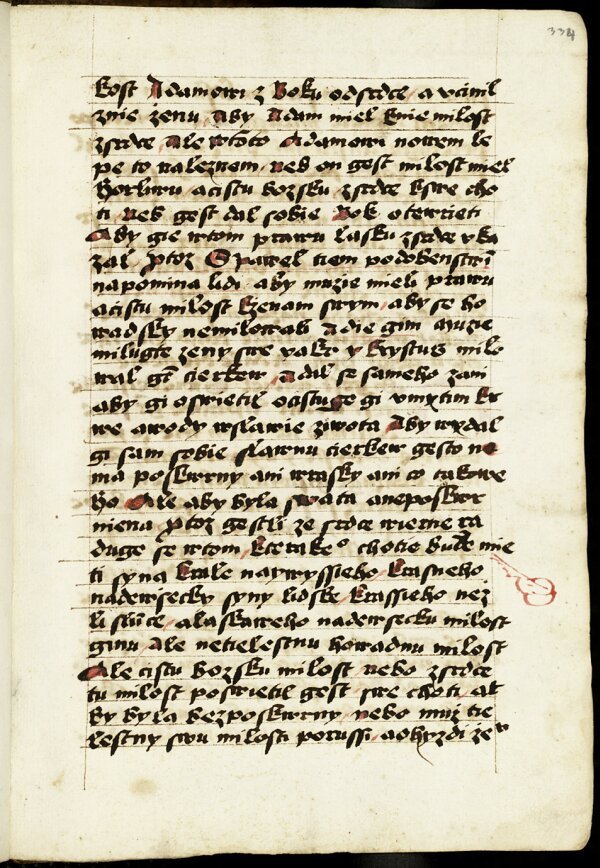 334
kost Adamowi z Boku odsrdce a vcinil
znie zenu Aby Adam miel knie milost
zsrdce Ale wtoto Adamowi nowem le
pe to naleznem neb on gest milost miel
horliwu acistu bozsku zsrdce kswe cho
ti neb gest dal sobie Bok otewrieti
Aby gie wtom prawu lasku zsrdce vka
zal ptoz S pawel tiem podobenstwi
napomina lidi aby muzie mieli prawu
acistu milost kzenam swym aby se ho
wadsky nemilowali A die gim Muzie
milugte zeny swe yakz y krystus milo
wal gt cierkew a dal se sameho zani
aby gi oswietil ocistuge gi vmytim kr
we awody wslawie ziwota Aby wzdal
gi sam sobie slawnu cierkew gesto ne
ma poskwrny ani wrasky ani co takowe
ho Ale aby byla swata aneposkwr
niena ptoz gestli ze srdce wierne ra
duge se wtom kterake chotie bude mie
ti syna krale naywyssieho krasneho
nadewsecky syny lidske krassieho nez
li slunce alaskaweho nadewsecku milost
ginu Ale netielestnu howadnu milost
Ale cistu bozsku milost nebo zsrdce
tu milost poswietil gest swe choti at
by byla bezposkwrny nebo muz tie
lestny swu milosti porussi aohyzdi ze